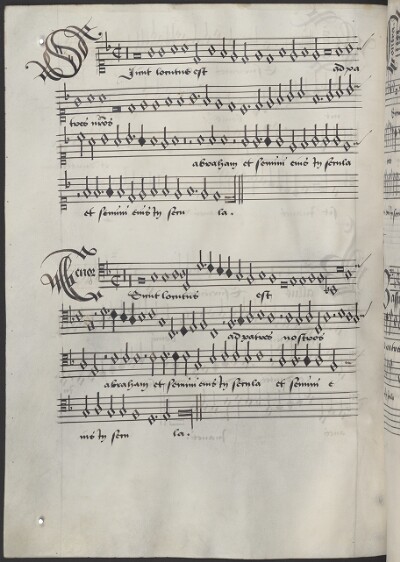 Sicut locutus est ad pa
tres nros
abraham et semini eius In secula
et semini eius In secu la.
Tenor Sicut locutus est
ad patres nostros
abraham et semini eius In secula et semini e
ius In secu la.